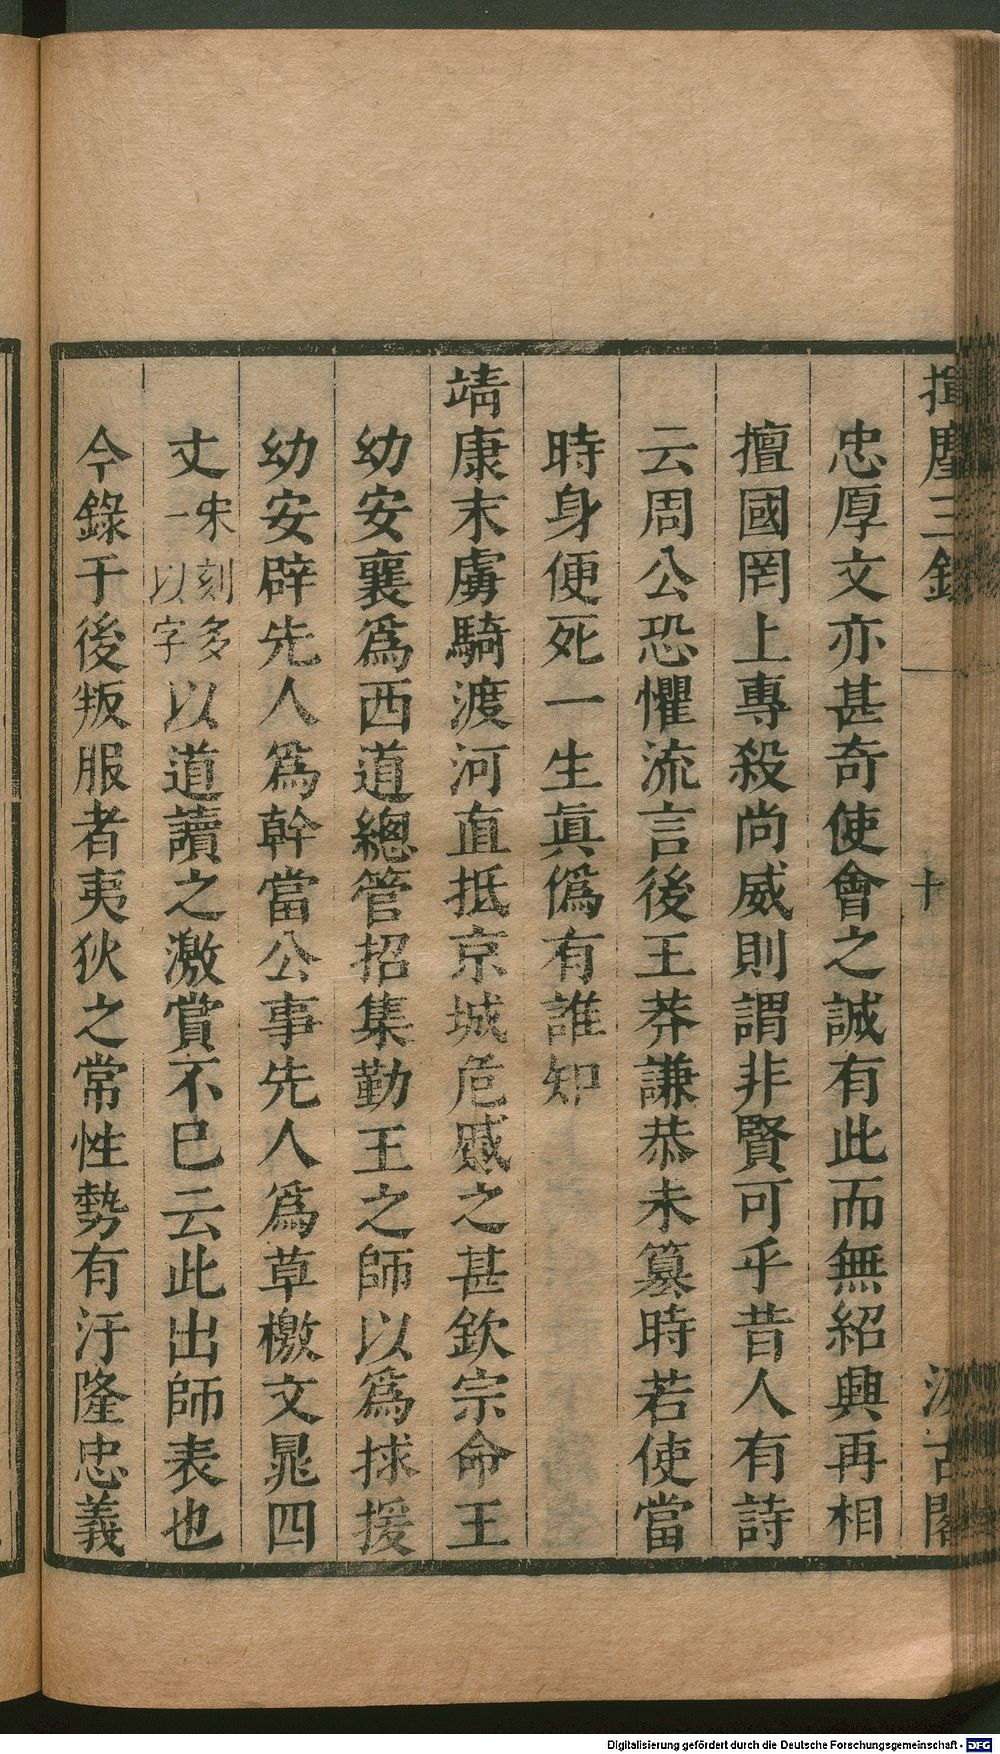 揮麈三錄 十 汲古閣
忠厚文亦甚奇使會之誠有此而無紹興再相
擅國罔上專殺尚威則謂非賢可乎昔人有詩
云周公恐懼流言後王莽謙恭未篡時若使當
時身便死一生眞僞有誰知
靖康末虜騎渡河直抵京城危慼之甚欽宗命王
幼安襄爲西道總管招集勤王之師以爲捄援
幼安辟先人爲幹當公事先人爲草檄文晁四
丈宋刻多一以字以道讀之激賞不巳云此出師表也
今錄于後叛服者夷狄之常性勢有汙隆忠義
Digitalisierung gefördert durch die Deutsche Forschungsgemeinschaft - DFG